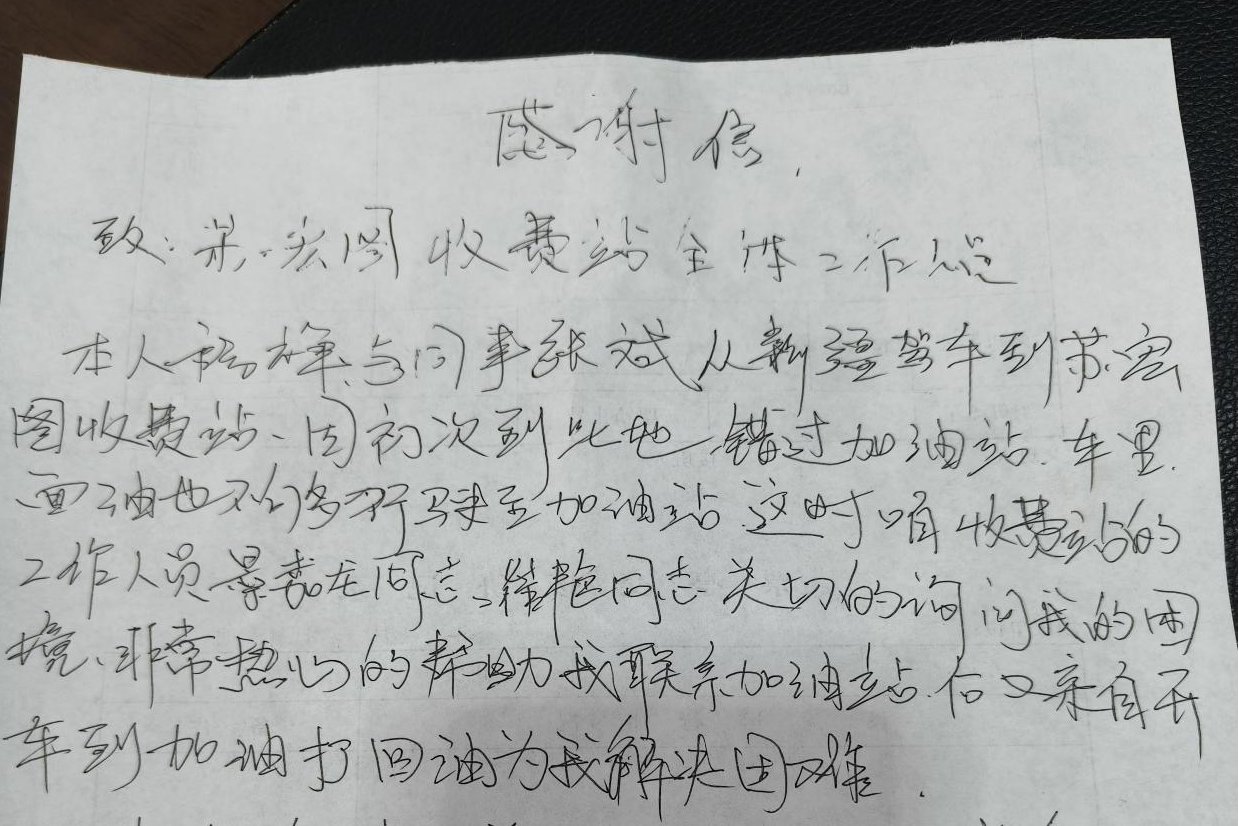 感谢信.
致:苏宏图收费站全体工作人员
本人杨峰、与同事张斌从新疆驾车到苏宏
图收费站、因初次到此地错过加油站.车里
面油也不够多行驶至加油站这时咱收费站的
工作人员景嘉龙同志、韩艳同志关切的询问我的困
境、非常热心的帮助我联系加油站后又亲自开
车到加油打回油为我解决困难.